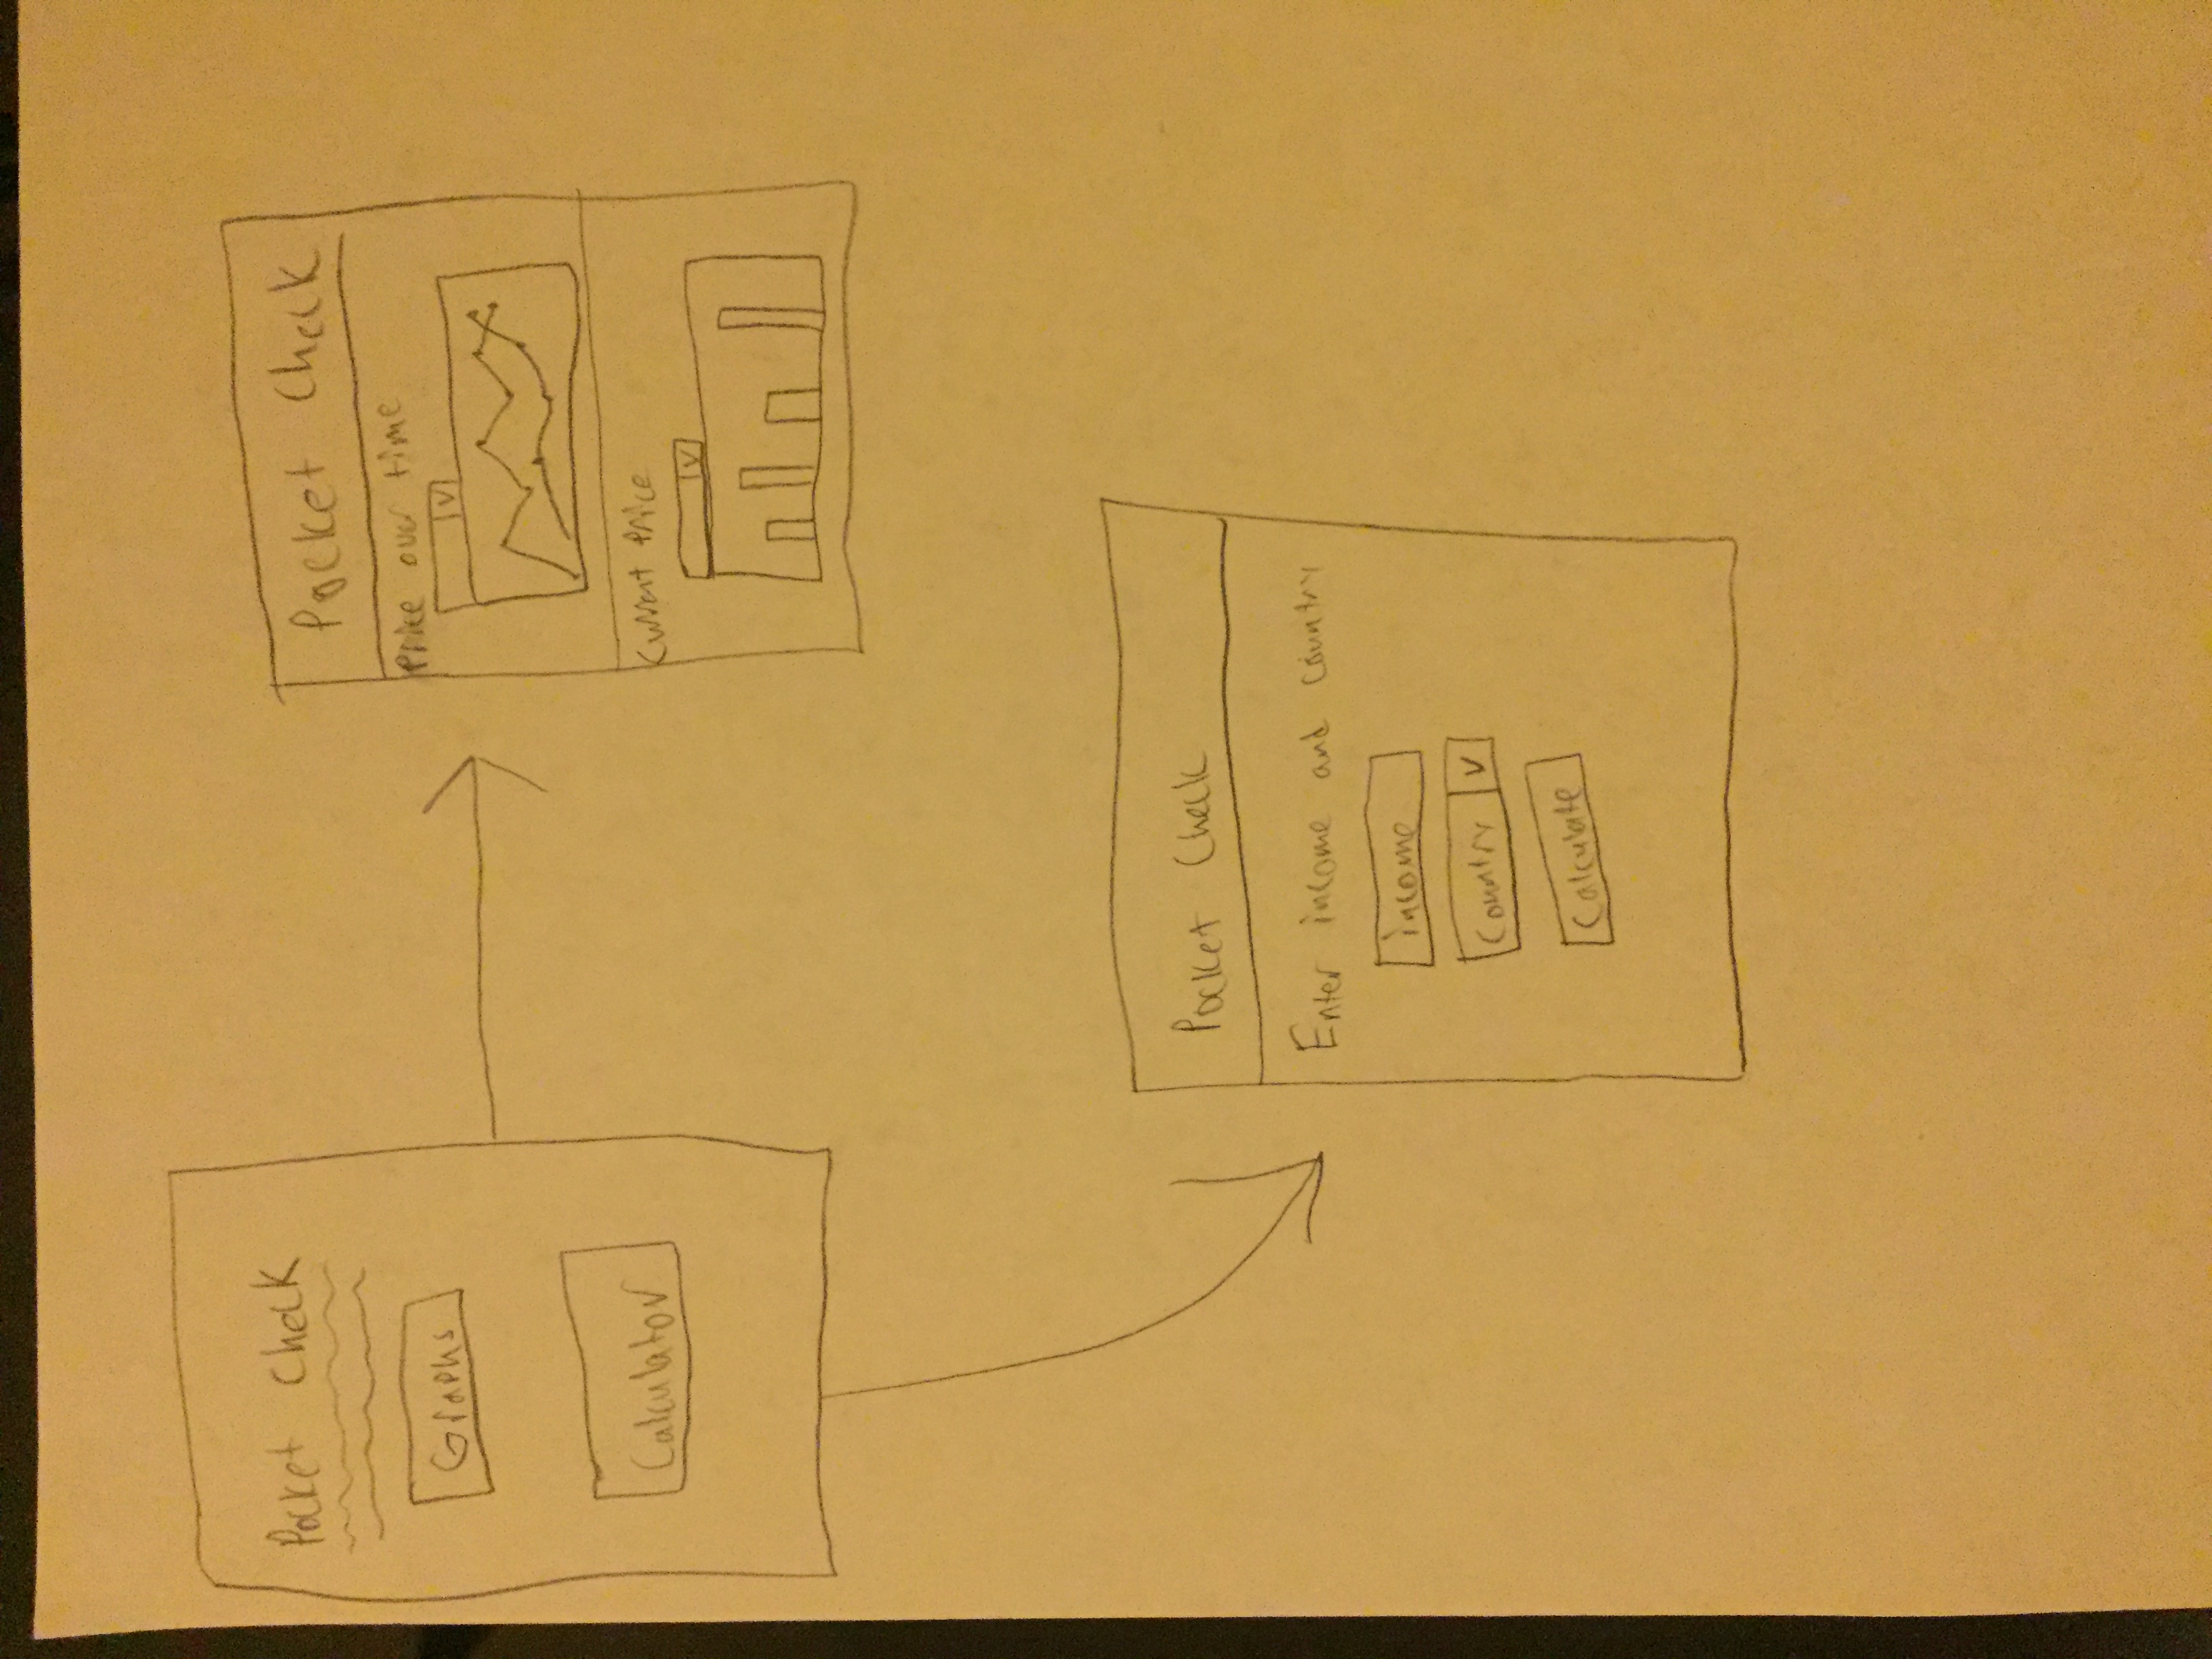 Pocket Check
Graphs
Calculator
Pocket Check
Price over time
V
Current Price
V
Pocket Check
Enter income and country
income
Country V
Calculate